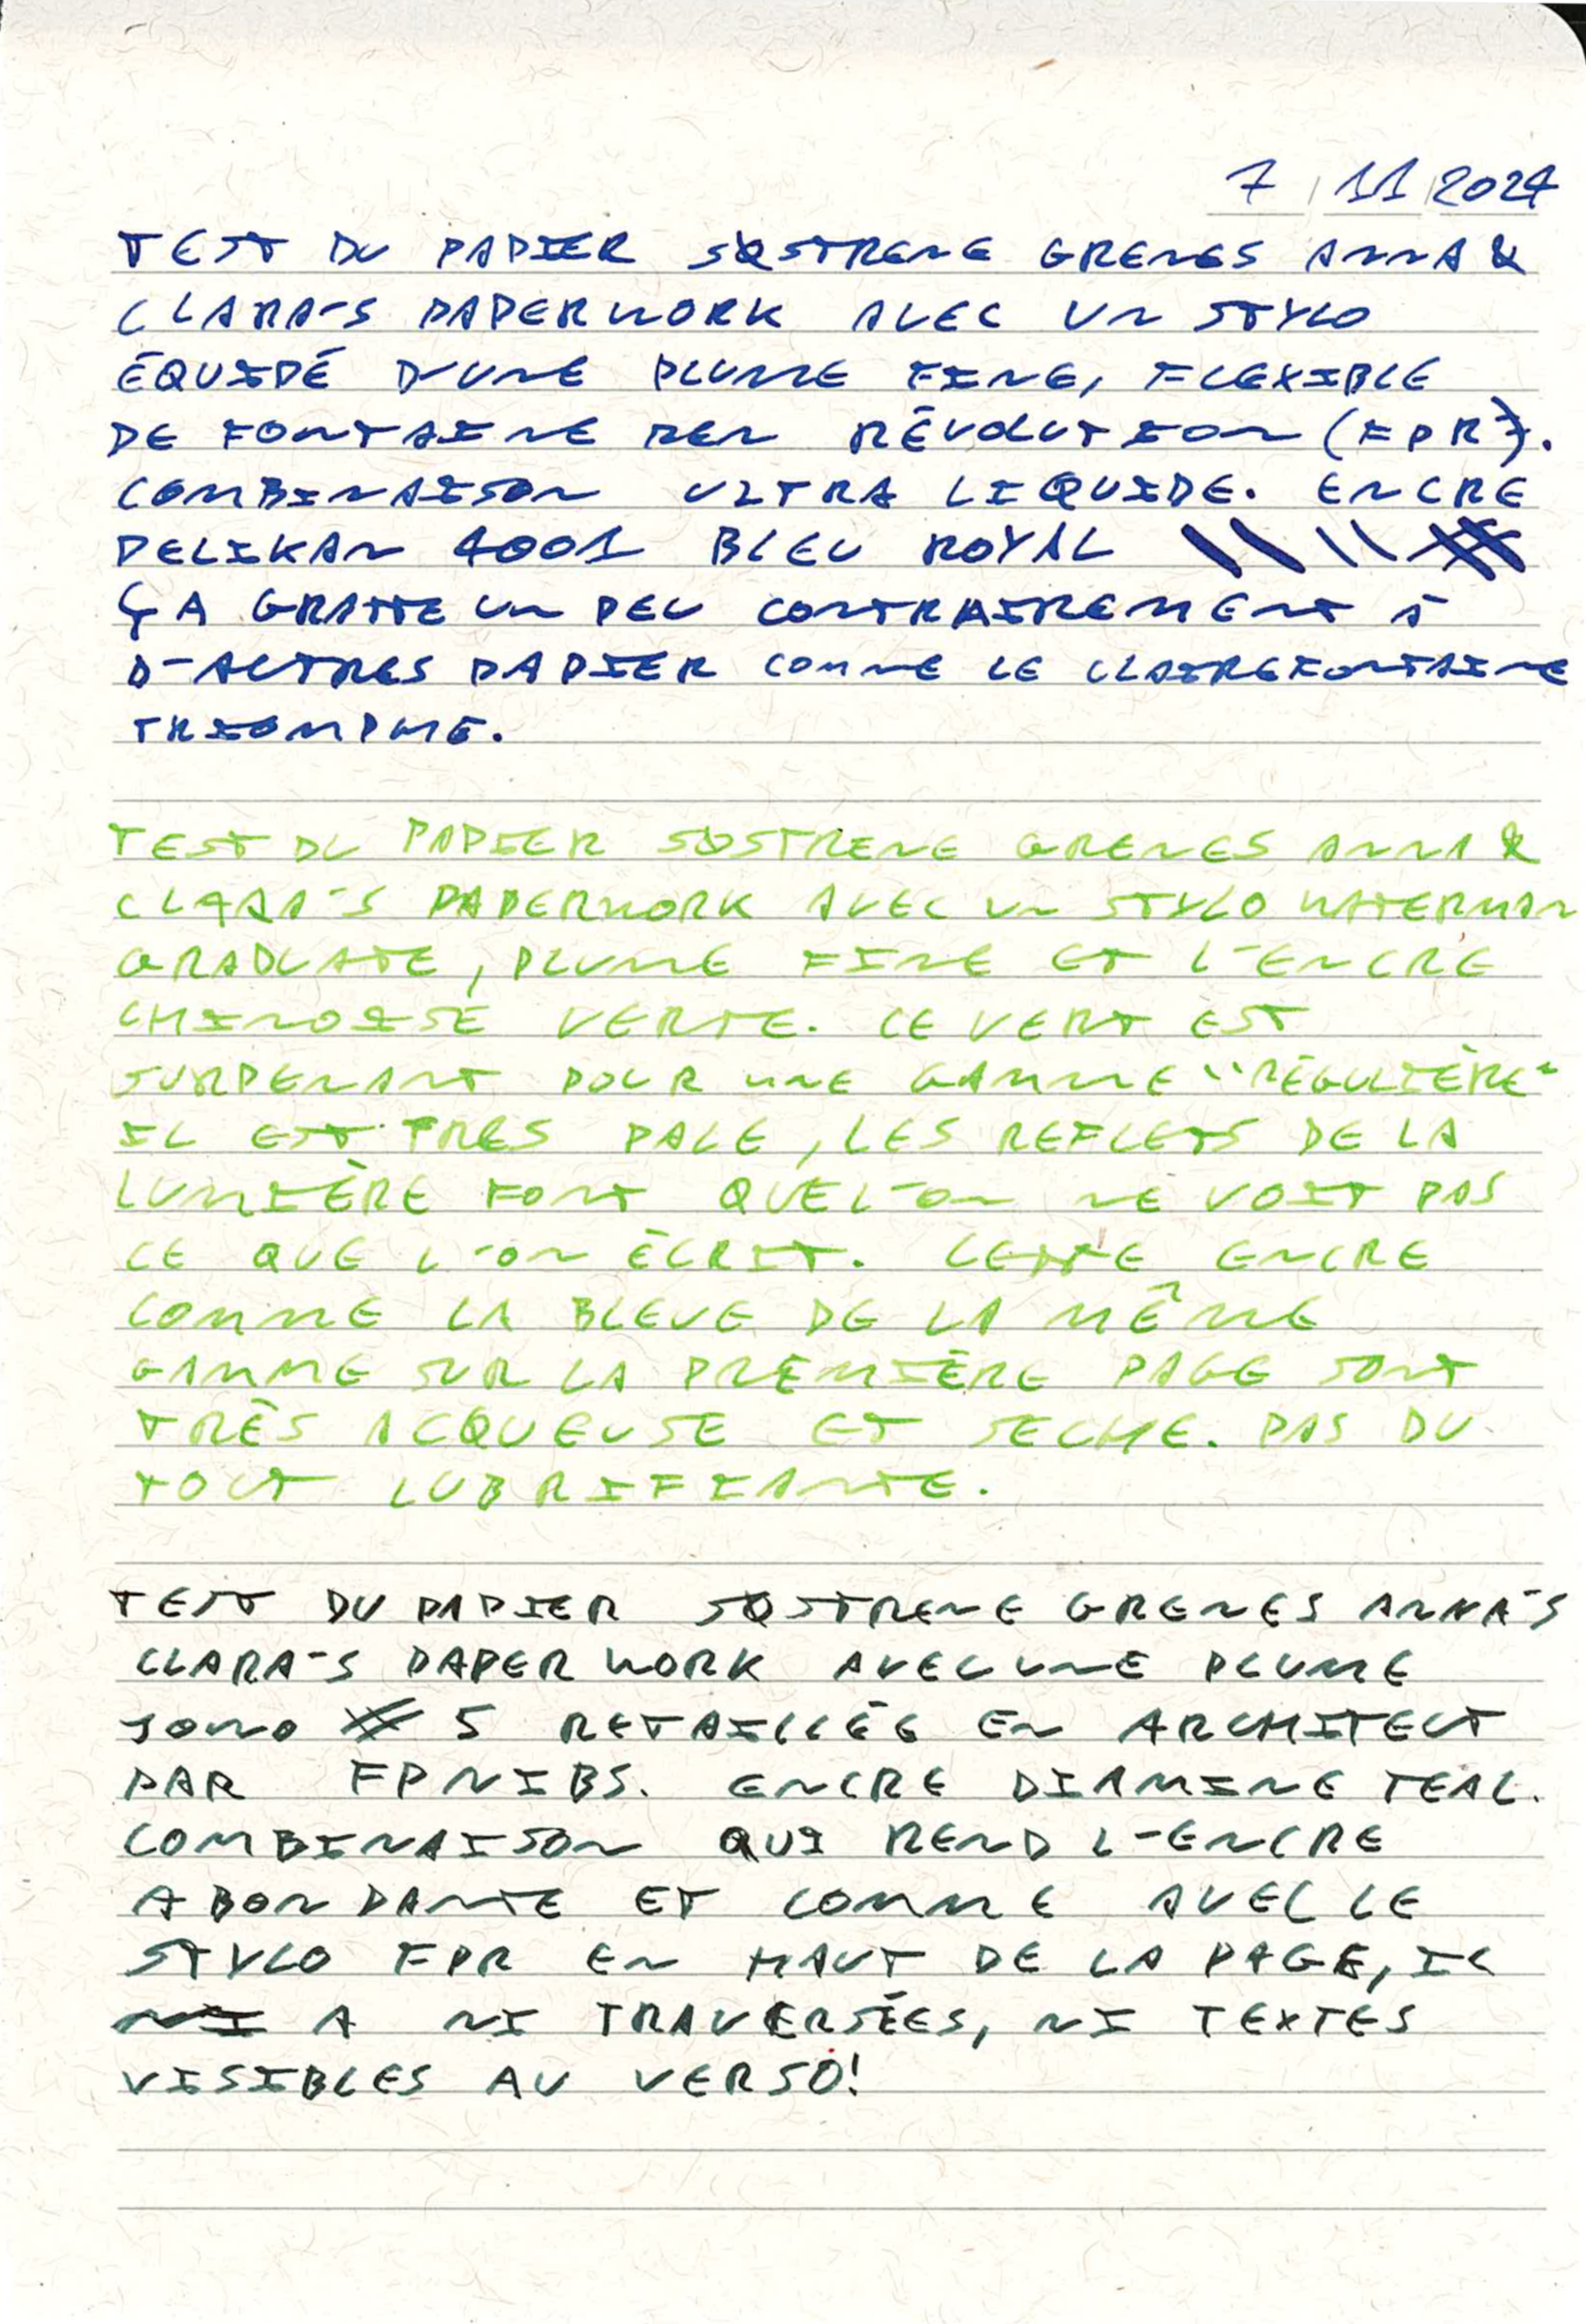 7 / 11 / 2024
TEST DU PAPIER SØSTRENE GRENES ANNA &
CLARA'S PAPERWORK AVEC UN STYLO
ÉQUIPÉ D'UNE PLUME FINE, FLEXIBLE
DE FONTAINE PEN RÉVOLUTION (FPR).
COMBINAISON ULTRA LIQUIDE. ENCRE
PELIKAN 4001 BLEU ROYAL
ÇA GRATTE UN PEU CONTRAIREMENT À
D'AUTRES PAPIER COMME LE CLAIREFONTAINE
TRIOMPHE.
TEST DU PAPIER SØSTRENE GRENES ANNA &
CLARA'S PAPERWORK AVEC UN STYLO WATERMAN
GRADUATE, PLUME FINE ET L'ENCRE
CHINOISE VERTE. CE VERT EST
SURPENANT POUR UNE GAMME "RÉGULIÈRE"
IL EST TRES PALE, LES REFLETS DE LA
LUMIÈRE FONT QUE L'ON NE VOIT PAS
CE QUE L'ON ÉCRIT. CETTE ENCRE
COMME LA BLEUE DE LA MÊME
GAMME SUR LA PREMIÈRE PAGE SONT
TRÈS ACQUEUSE ET SECHE. PAS DU
TOUT LUBRIFIANTE.
TEST DU PAPIER SØSTRENE GRENES ANNA'S
CLARA'S PAPERWORK AVEC UNE PLUME
JOWO # 5 RETAILLÉE EN ARCHITECT
PAR FPNIBS. ENCRE DIAMINE TEAL.
COMBINAISON QUI REND L'ENCRE
ABONDANTE ET COMME AVEC LE
STYLO FPR EN HAUT DE LA PAGE, IL
NI A NI TRAVERSÉES, NI TEXTES
VISIBLES AU VERSO!